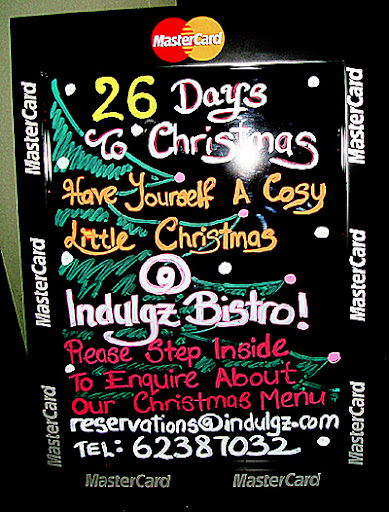 MasterCard
26 Days
To Christmas
Have Yourself A Cosy
Little Christmas
@
Indulgz Bistro!
Please Step Inside
To Enquire About
Our Christmas Menu
reservations@indulgz.com
TEL: 62387032
MasterCard
MasterCard
MasterCard
MasterCard
MasterCard
MasterCard
MasterCard
MasterCard